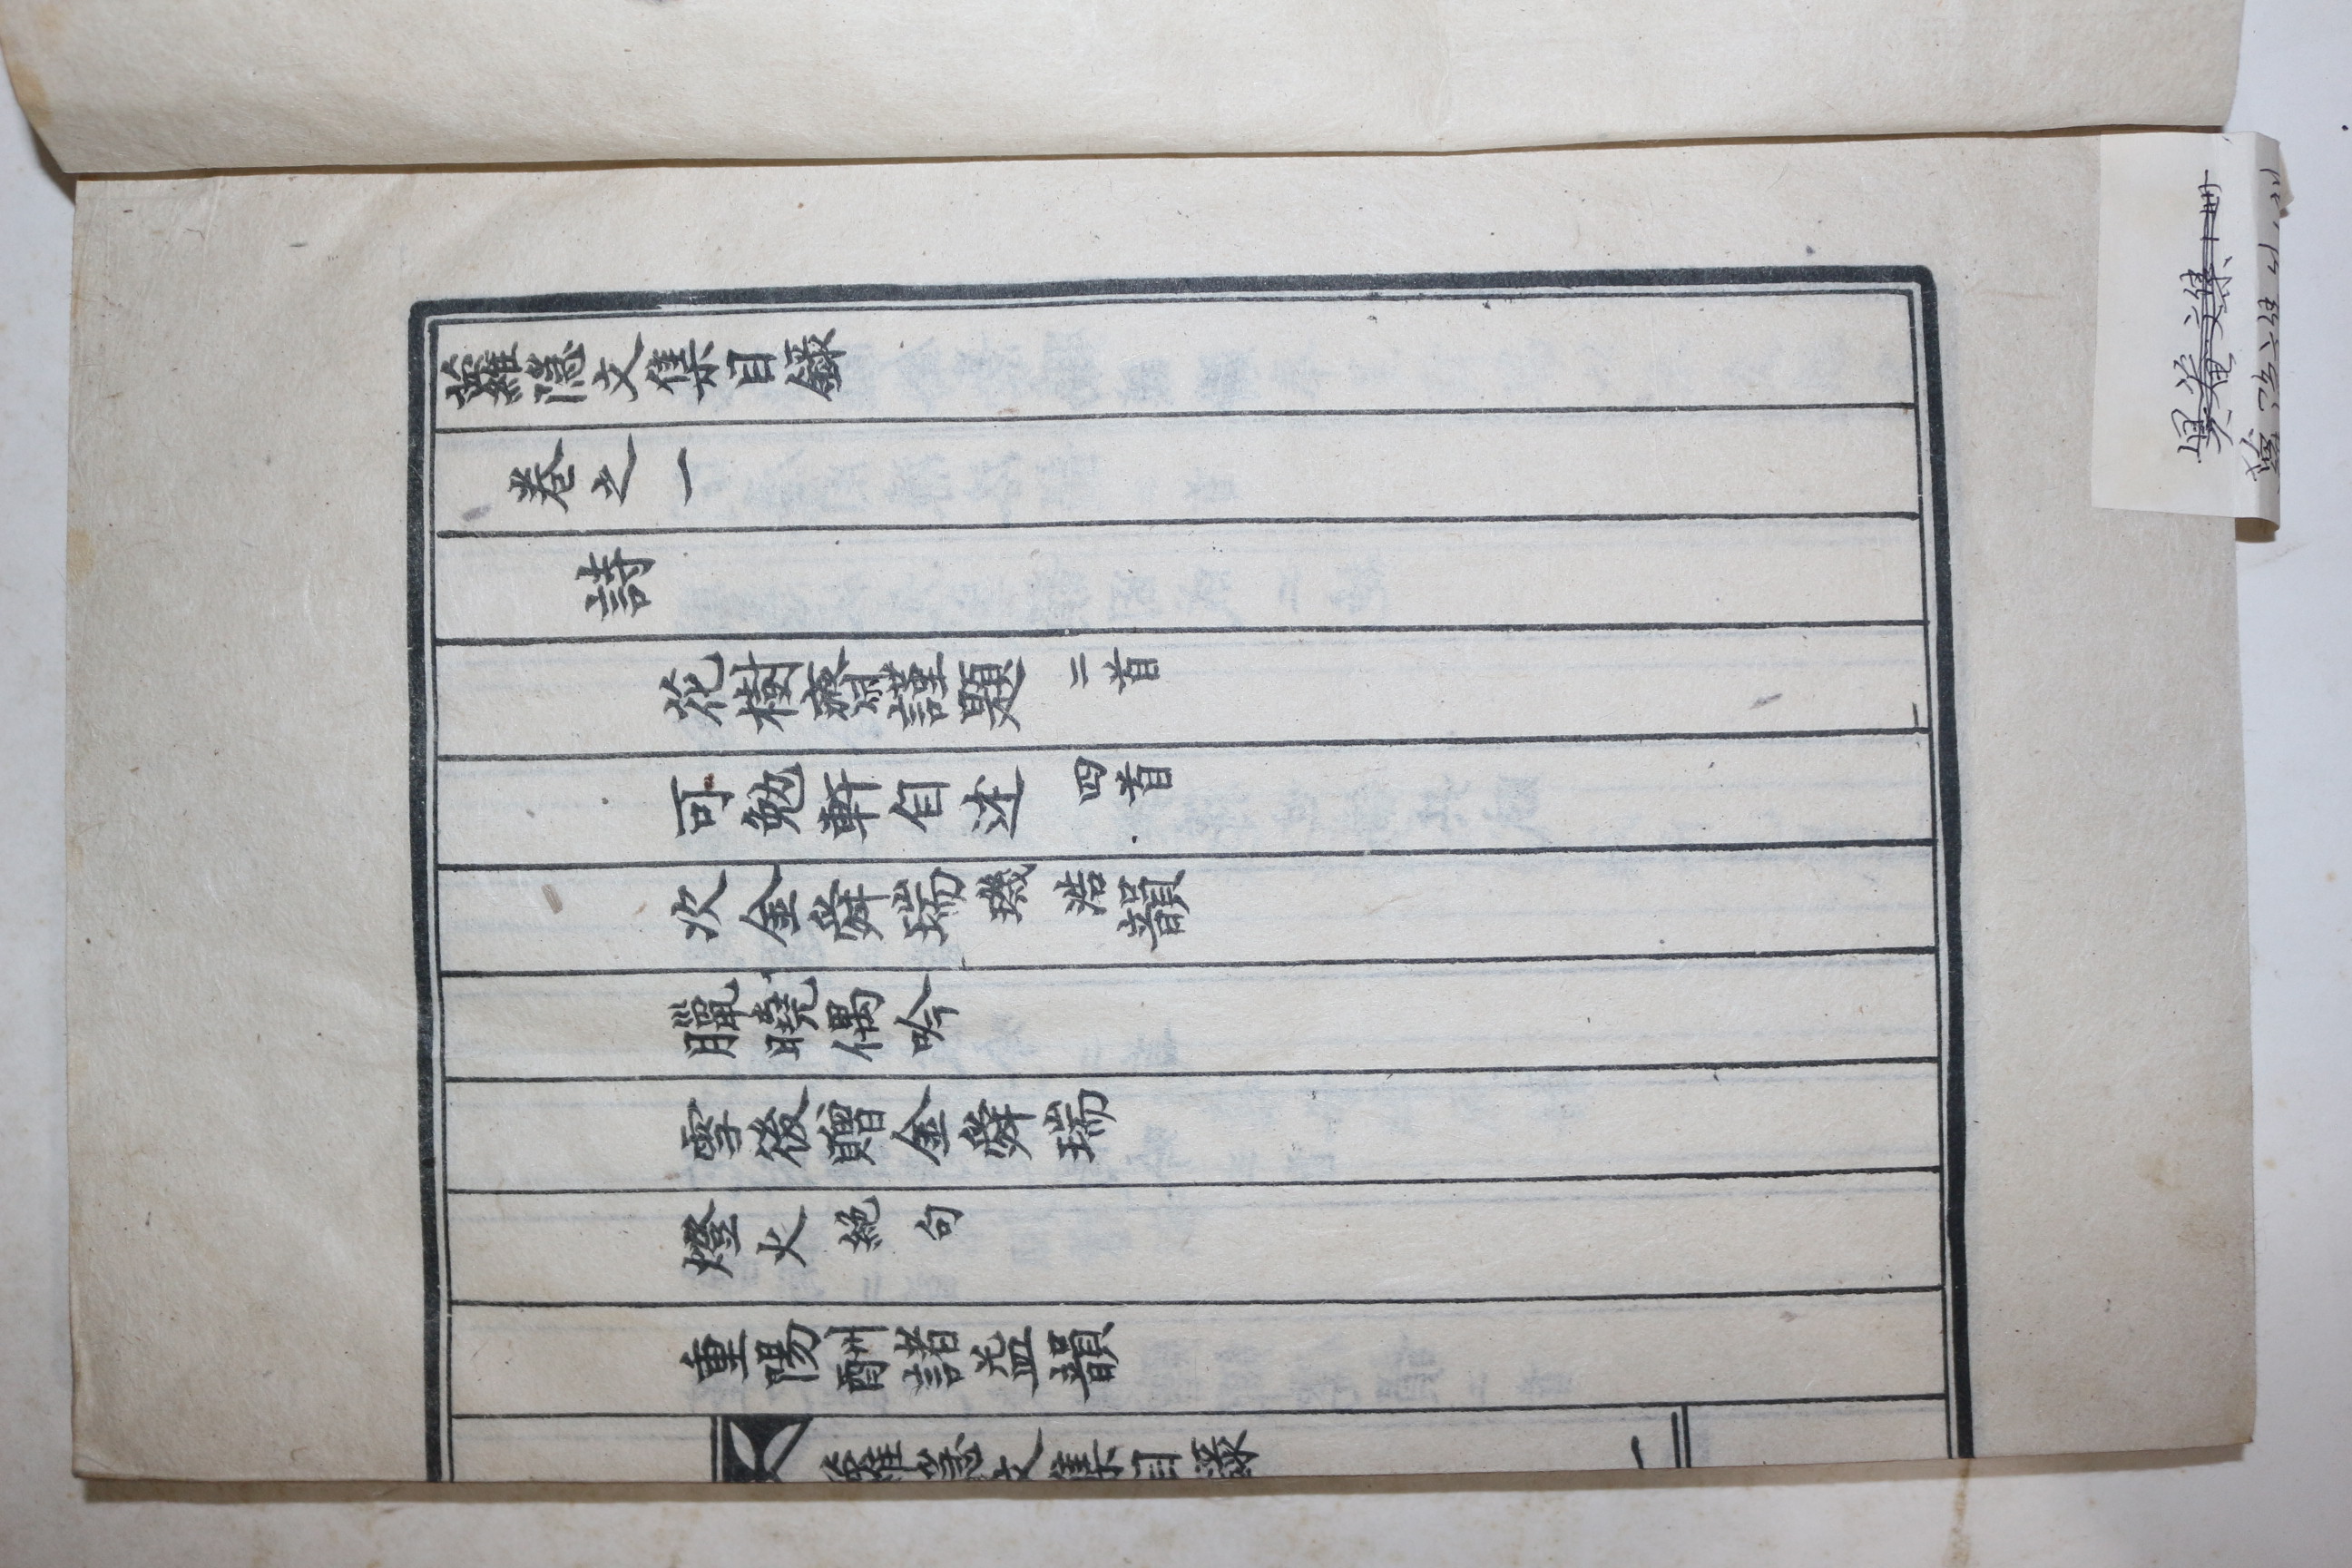 蘿隱文集目錄
卷之一
詩
花樹齋謹題 二首
可勉軒自述 四首
次金舜瑞璣浩韻
臘曉偶吟
雪後贈金舜瑞
燈火 絕句
重陽酬諸益韻
蘿隱文集目錄 一
文集1冊